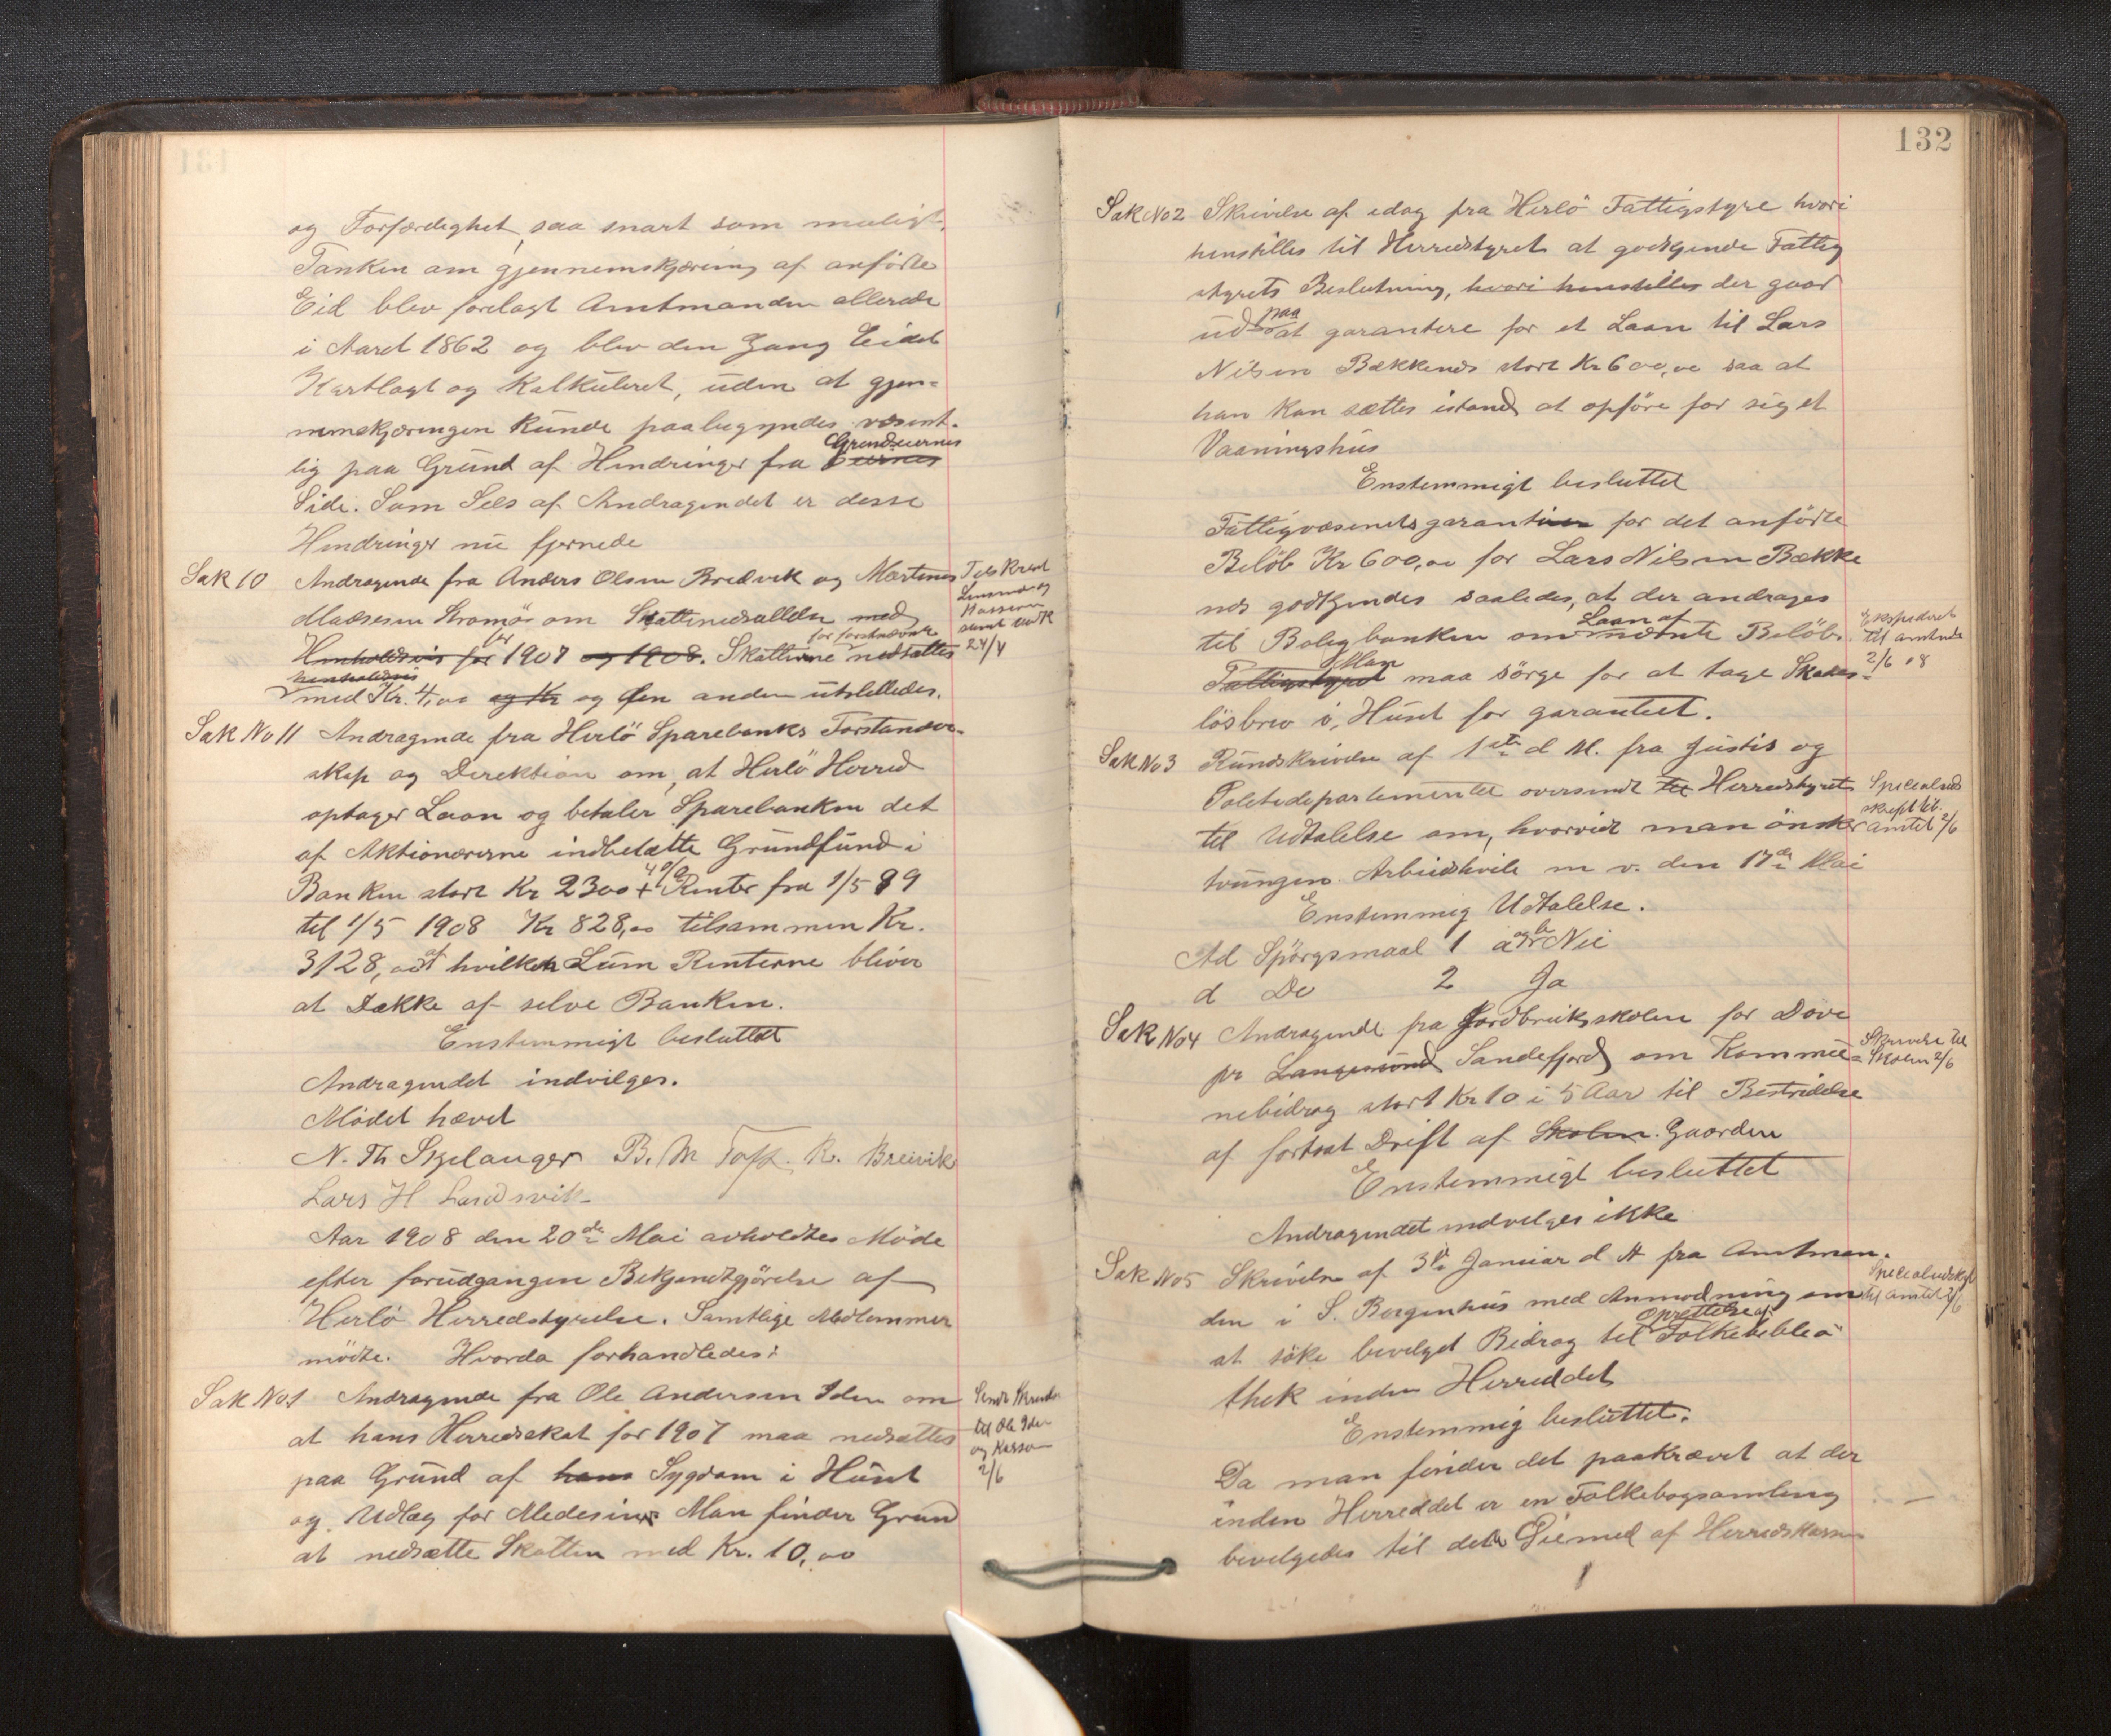 og Torfærdighet, saa snart som muligt.
Tanken om gjennemskjæring af anförte
Eid blev forelagt Amtmanden allerede
i Aaret 1862 og blev den Gang Eidet
Kartlagt og Kalkuleret, uden at gjen-
nemskjæringen Kunde paabegyndes væsent-
Grundeiernes
lig paa Grund af Hindringer fra Eiernes
Side. Som Sees af Andragendet er desse
Hindringer nu fjernede
Sak 10 Andragende fra Anders Olsen Bredvik og Martinus
Madsesen Kromö om Skattenedsættelse med
for for förstnævnte
Henholdsvis for 1907 og 1908. Skatterne nedsættes
henholdsvis
med Kr. 4,00 og Kr og den anden utstilledes.
24/4
Sak No 11 Andragende fra Herlö Sparebanks Forstander-
skap og Direktion om, at Herlö Herred
optager Laan og betaler Sparebanken det
af Aktionærerne indbetalte Grundfund i
4 %
Banken stort Kr 2300 + Renter fra 1/5 99
til 1/5 1908 Kr 828,00 tilsammen Kr.
3128,00 af hvilken Sum Renterne bliver
at Dække af selve Banken.
Enstemmigt besluttet
Andragendet indvilges.
Mödet hævet
N. Th Skjelanger B. M Toft. R. Breivik
Lars H Landsvik
Aar 1908 den 20de Mai avholdtes Möde
efter forudgangen Bekjendtgjörelse af
Herlö Herredstyrelse. Samtlige Medlemmer
mödte. Hvorda forhandledes:
Sak No 1 Andragende fra Ole Andersen Iden om
at hans Herredsskat for 1907 maa nedsættes
paa Grund af hans Sygdom i Huset
og Udlæg for Medesiner Man finder Grund
at nedsætte Skatten med Kr. 10,00
Sendt Skrivelse
til Ole Iden
og Kasse
2/6
132
Sak No 2 Skrivelse af idag fra Herlö Fattigstyre hvori
henstilles til Herredstyret at godkjende Fattig
styrets Beslutning, hvori henstilles der gaar
paa
ud at garantere for et Laan til Lars
Nilsen Bækkenes stort Kr 600,00 saa at
han kan sættes istand at opföre for sig et
Vaaningshus
Enstemmigt besluttet
Fattigvæsenets garantien for det anförte
Belöb Kr 600,00 for Lars Nilsen Bække
nes godkjendes saaledes, at der andrages
Laan af
til Boligbanken om nævnte Belöb.
Man
Fattigstyret maa sörge for at tage Skades-
lösbrev i Huset for garantiet.
Ekspederet
til amtet
2/6 08
Sak No 3 Rundskrivelse af 1ste d M. fra Justis og
Politidepartementet oversendt til Herredstyret
til Udtalelse om, hvorvidt man önsker
tvungen Arbeidshvile m v. den 17de Mai
Specialud
skrift til
amtet 2/6
Enstemmig Udtalelse.
Ad Spörgsmaal 1 a og b Nei
d Do 2 Ja
Sak No 4 Andragende fra Jordbruksskolen for Döve
pr Langesund Sandefjord om Kommu-
nebidrag stort Kr 10 i 5 Aar til Bestridelse
af fortsat Drift af Skolen. Gaarden
Skrivelse til
Skolen 2/6
Enstemmigt besluttet
Andragendet indvelges ikke
Sak No 5 Skrivelse af 3de Januar d A fra Amtman-
den i S. Bergenhus med Anmodning om
Oprettelse af
at söke bevelget Bidrag til Folkebiblio
thek inden Herreddet
Specialudskrift
til amtet 2/6
Enstemmig besluttet.
Da man finder det paakrævet at der
inden Herreddet er en Folkebogsamling
bevelgedes til dette Öiemed af Herredskassen